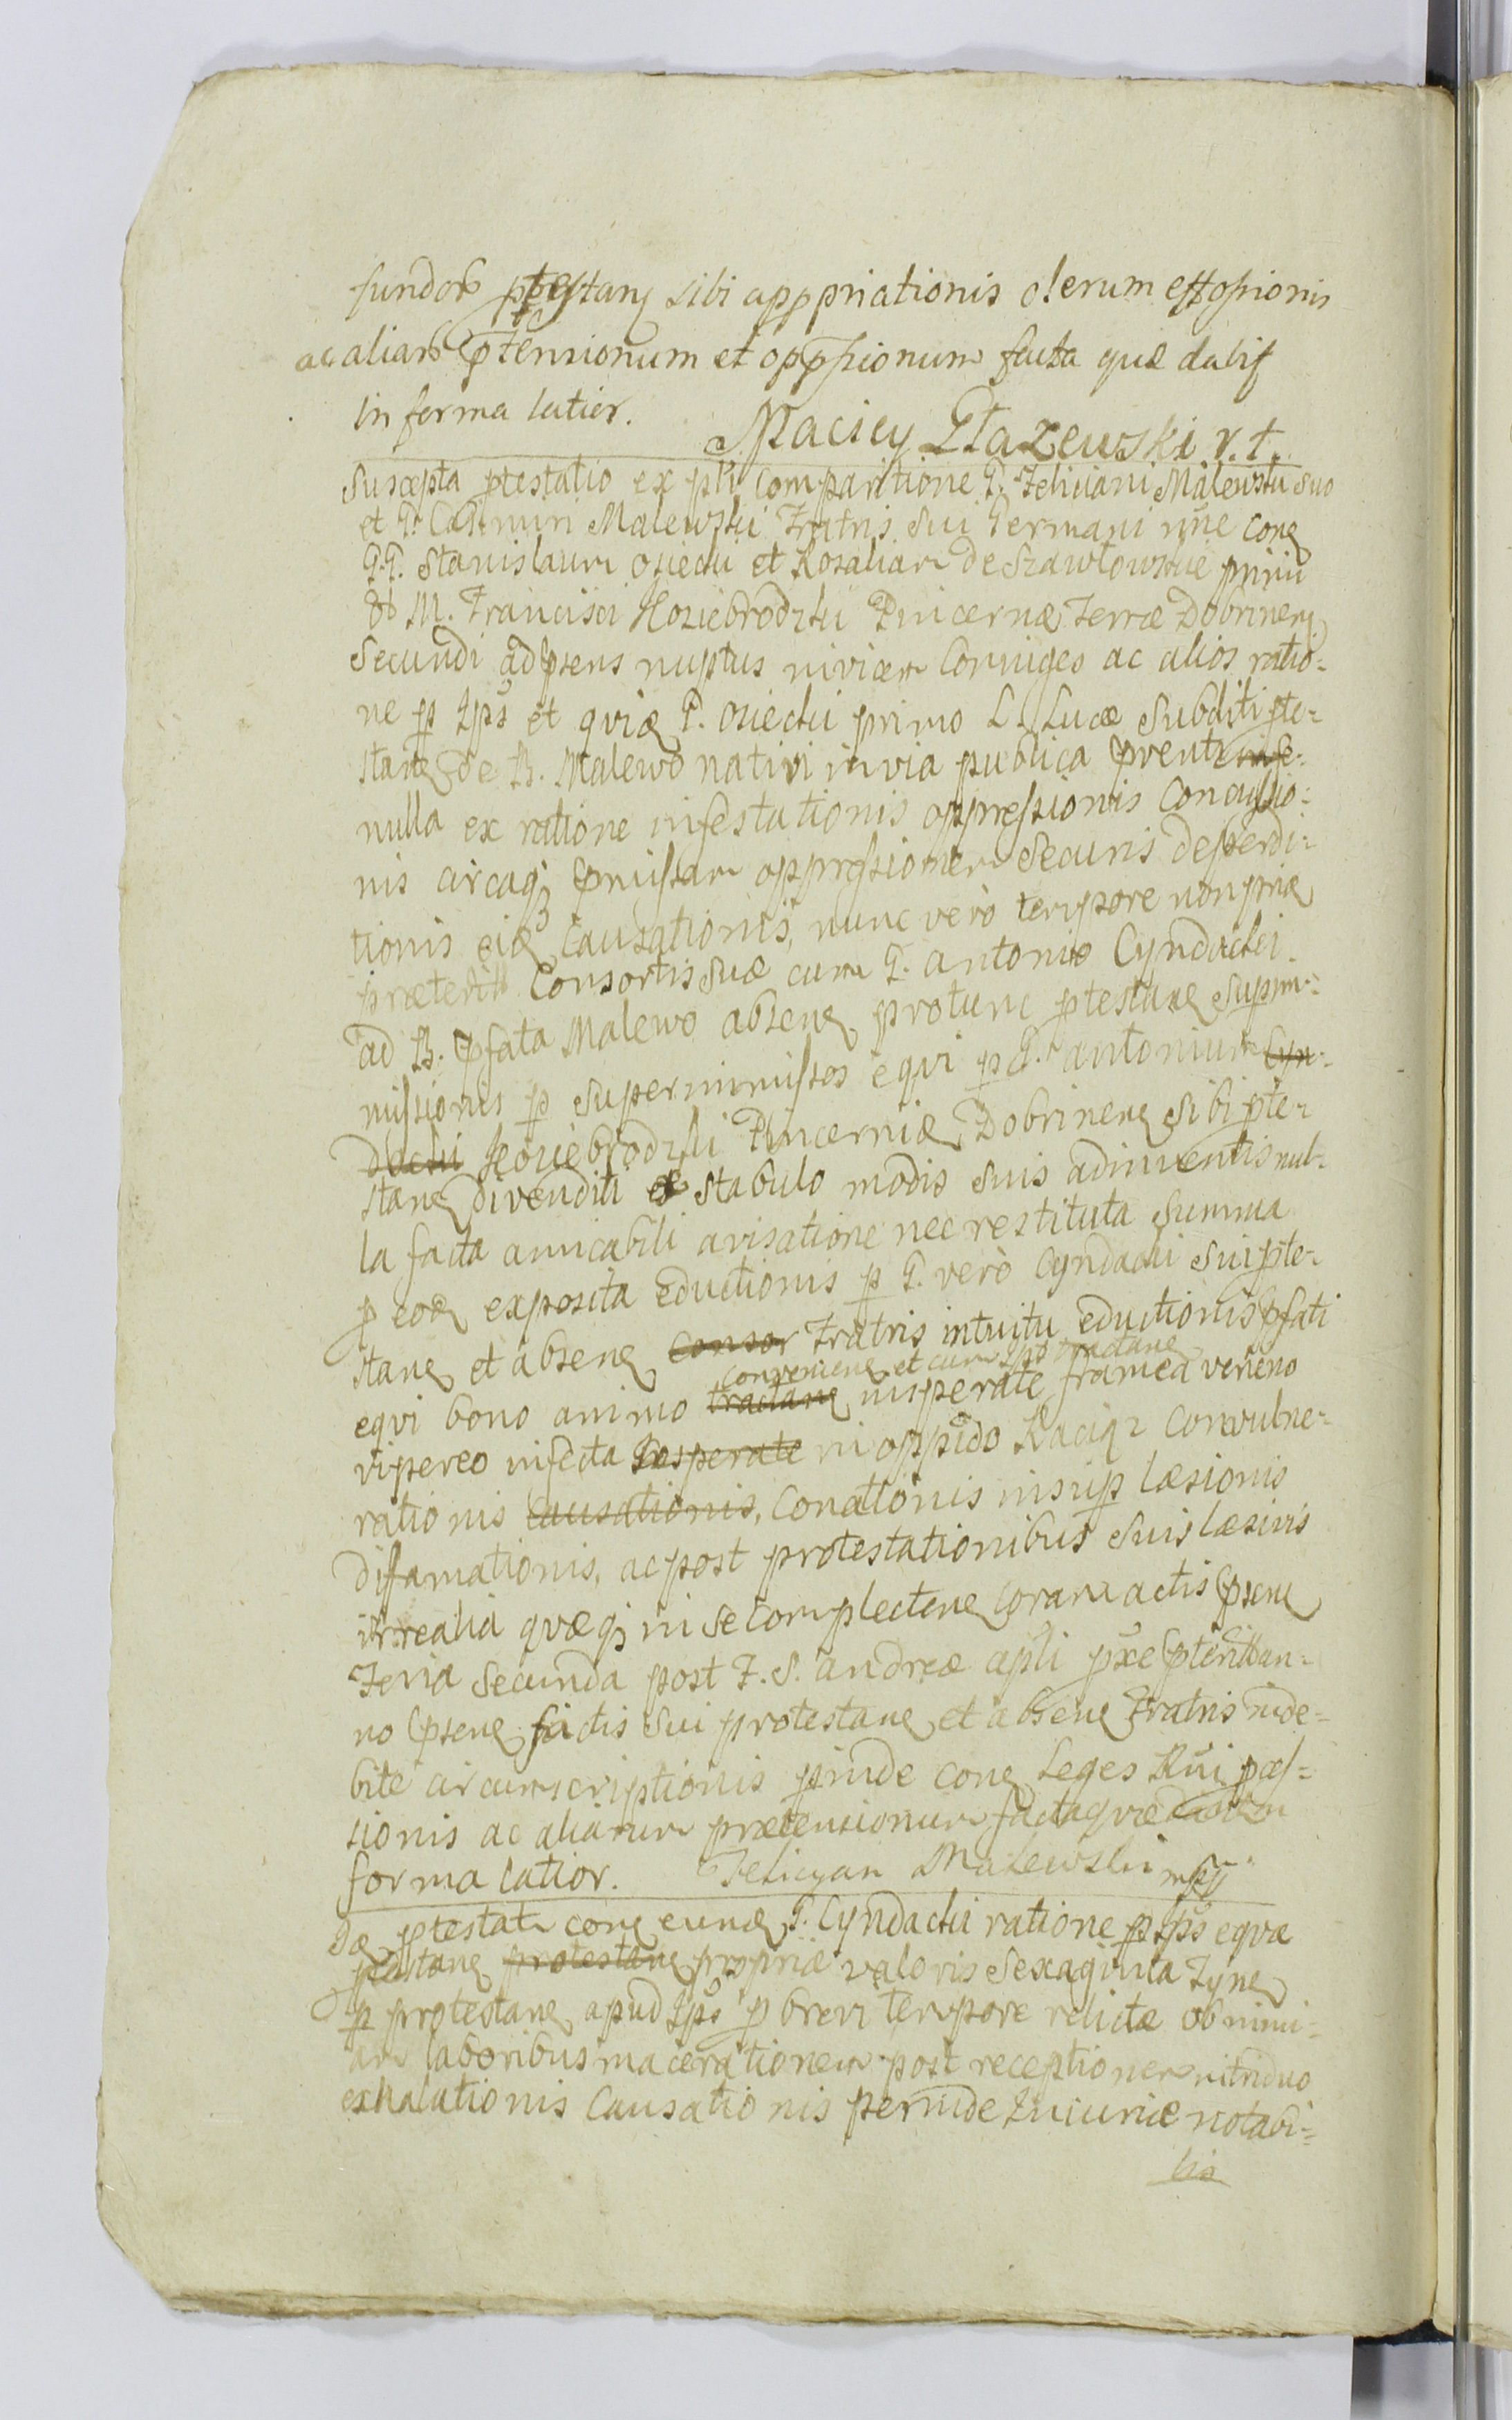 fundor ptestan sibi apppriationis olerum effossionis
ac aliar ptensionum et oppssionum facta quæ dabit
in forma latior. Maciey Głazewski r.t.
Suscepta ptestatio ex psti comparitione G. Feliciani Malewski suo
et G. Casimiri Malewski Fratris sui Germani nne con
G.G. Stanislaum Osiecki et Rosaliam de Szawłowskie primi
M. Francisci Koziebrodzki Pincernæ Terræ Dobrinen
Secundi ad psens nuptus invicem Coniuges ac alios ratio=
ne p Ips et quia G. Osiecki primo L. Lucæ Subditi pte=
stan de B. Malewo nativi in via publica pvent
nulla ex ratione infestationis oppressionis Concussio=
nis circaq pmissam oppressionem Securis desperdi=
tionis ei Causationis, nunc verò tempore non
præterit Consortis suæ cum G. Antonio Cyndacki
ad B. pfata Malewo absen protunc ptestan Supim=
missionis p superimmissos eqvi p G. Antonium Cyn=
dacki Koziebrodzki Pincerniæ Dobrinen sibi pte=
stan divenditi e stabulo modis suis adinventis nul=
la facta amicabili avisatione nec restituta summa
p eo exposita eductionis p G. verò Cyndacki sui pte=
stan et absen Consor Fratris intuitu eductionis pfati
convenien et cum Ips tractan
eqvi bono animo tractan insperate framea veneno
vipereo infecta Insperate in oppido Raciąz Convulne=
rationis Causationis, Conationis insup læsionis
difamationis, ac post protestationibus suis læsivis
irrealia quæq in se complecten coram actis psen
Feria Secunda post F. S. Andreæ apli pxe pterit an=
no psen factis sui protestan et absen Fratris inde=
bite circumscriptionis pinde con Leges Rni
sionis ac aliarum prætensionum facta quæ
forma latior. Felicyan Malewski mp
ptestat con eund G. Cyndacki ratione p Ips eqvæ
ptestan protestan propriæ valoris Sexaginta Tyn
p protestan apud Ips p brevi tempore relictæ ob nimi=
am laboribus macerationem post receptionem in triduo
exhalationis Causationis perinde Iniuriæ notabi=
lis